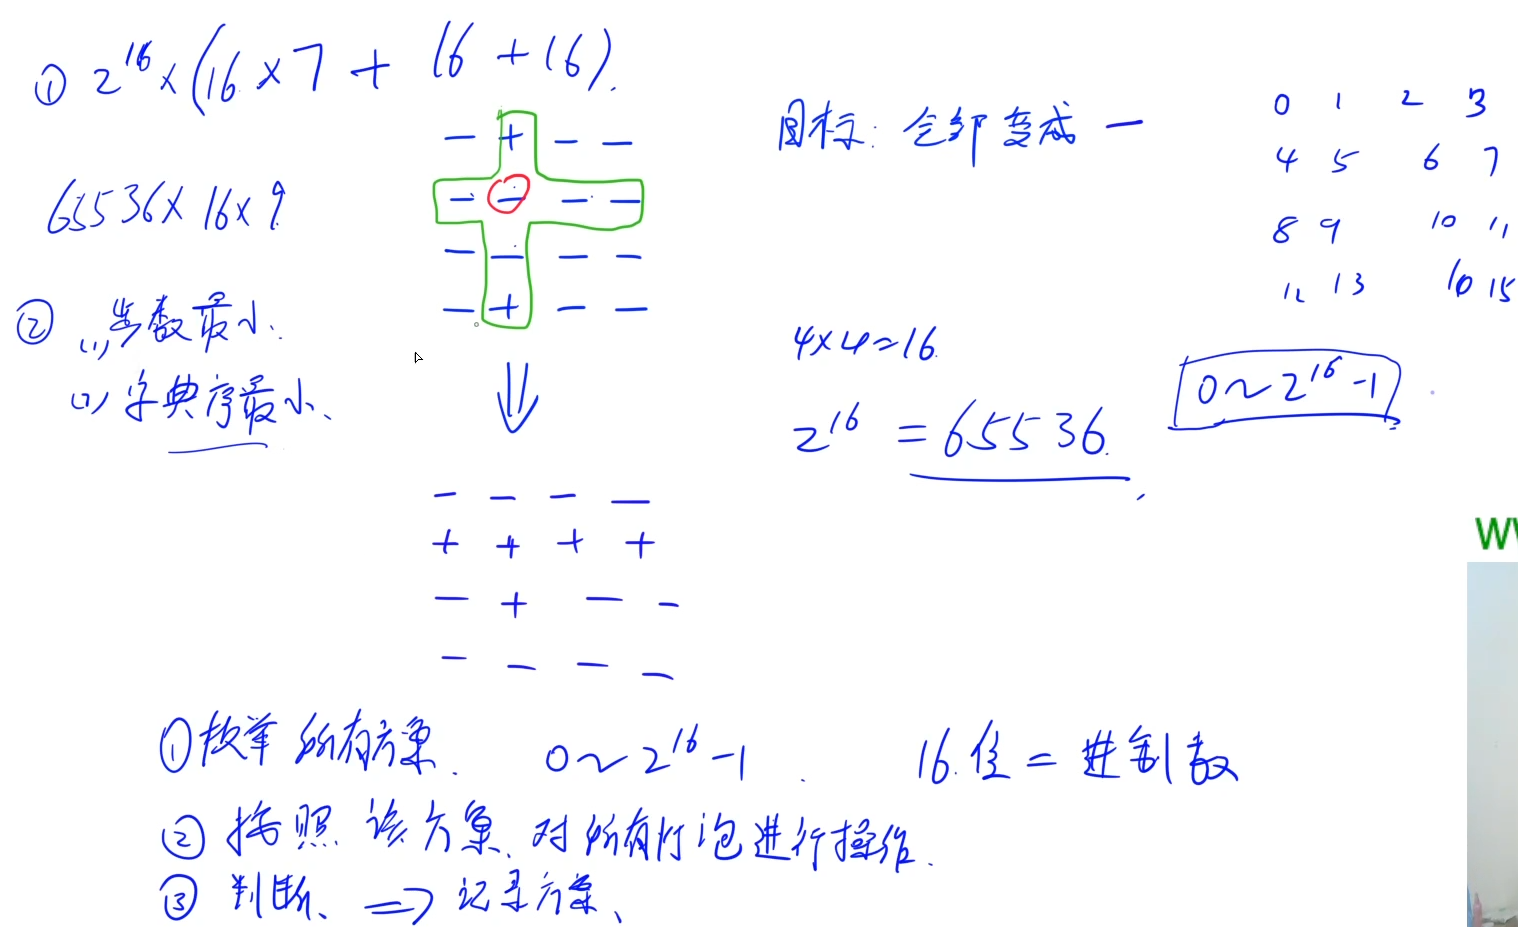 ① 2^16 × (16 × 7 + 16 + 16).
65536 × 16 × 9
② (1) 步数最小.
(2) 字典序最小、
- + - -
- - - -
- - - -
- + - -
⇓
- - - -
+ + + +
- + - -
- - - -
目标: 全部变成 -
4×4=16
2^16 = 65536.
0 1 2 3
4 5 6 7
8 9 10 11
12 13 10 15
0~2^16-1
W
①枚举所有方案. 0~2^16-1. 16位二进制数
②按照该方案、对所有灯泡进行操作.
③判断、=> 记录方案、